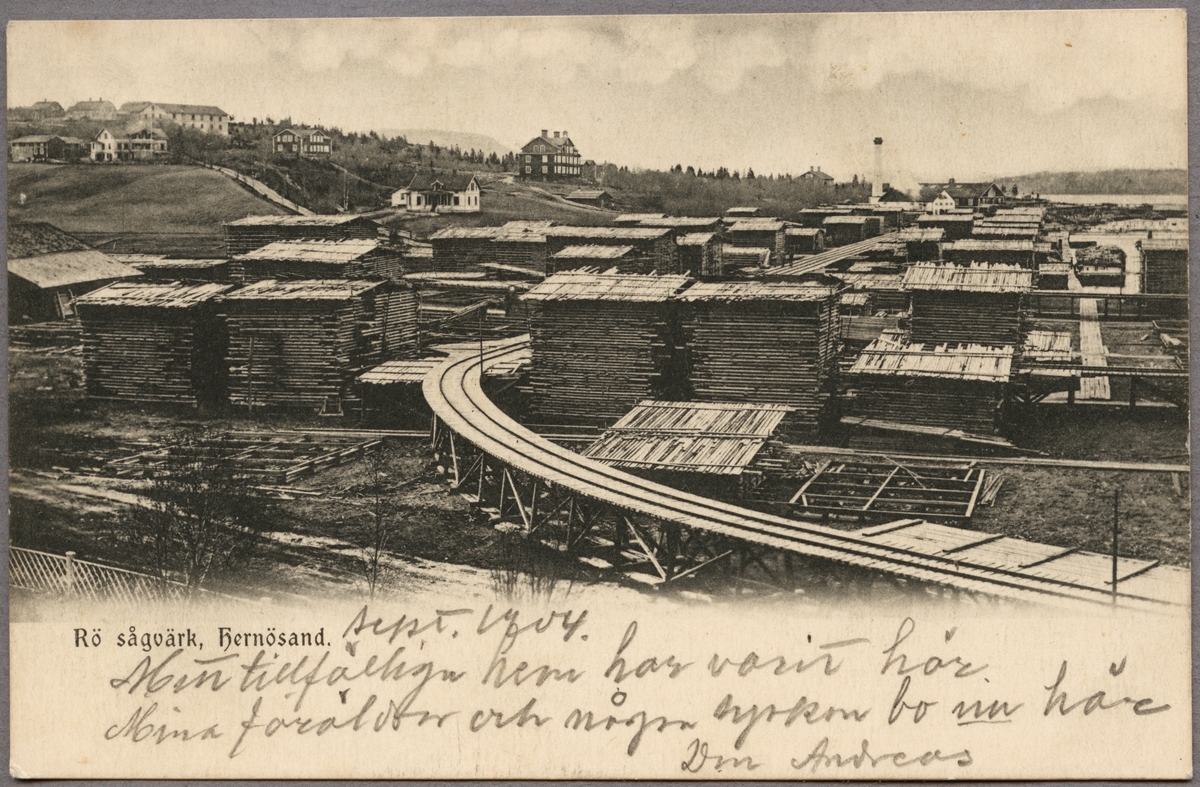 Rö sågvärk, Hernösand. Sept. 1904.
Mitt tillfälliga hem har varit här.
Mina föräldrar och några syskon bo nu här
Din Andreas